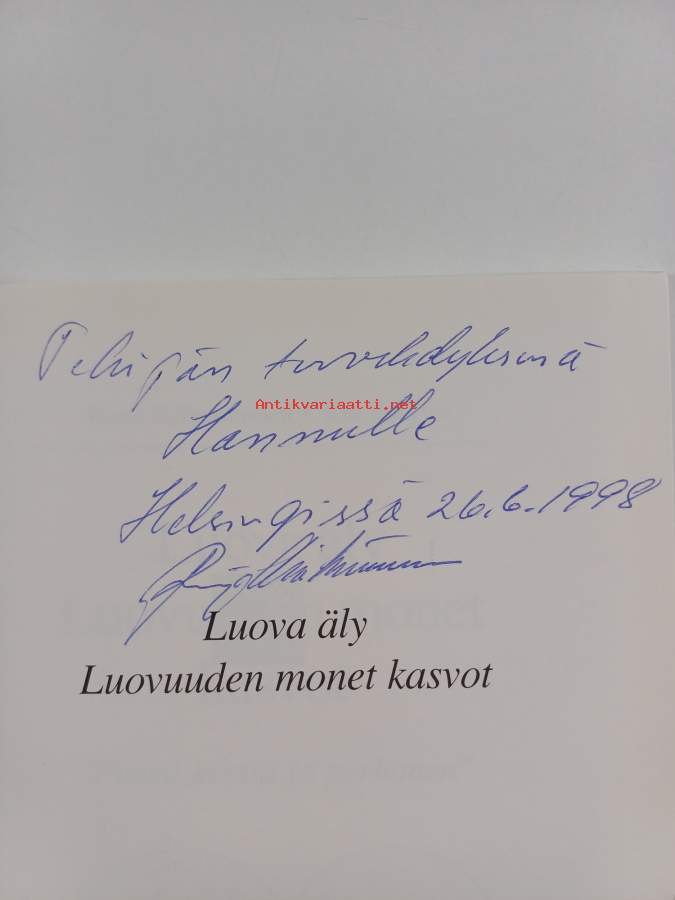 Tekijän tervehdyksenä
Antikvariaatti.net
Hannulle
Helsingissä 26.6.1998
Luova äly
Luovuuden monet kasvot